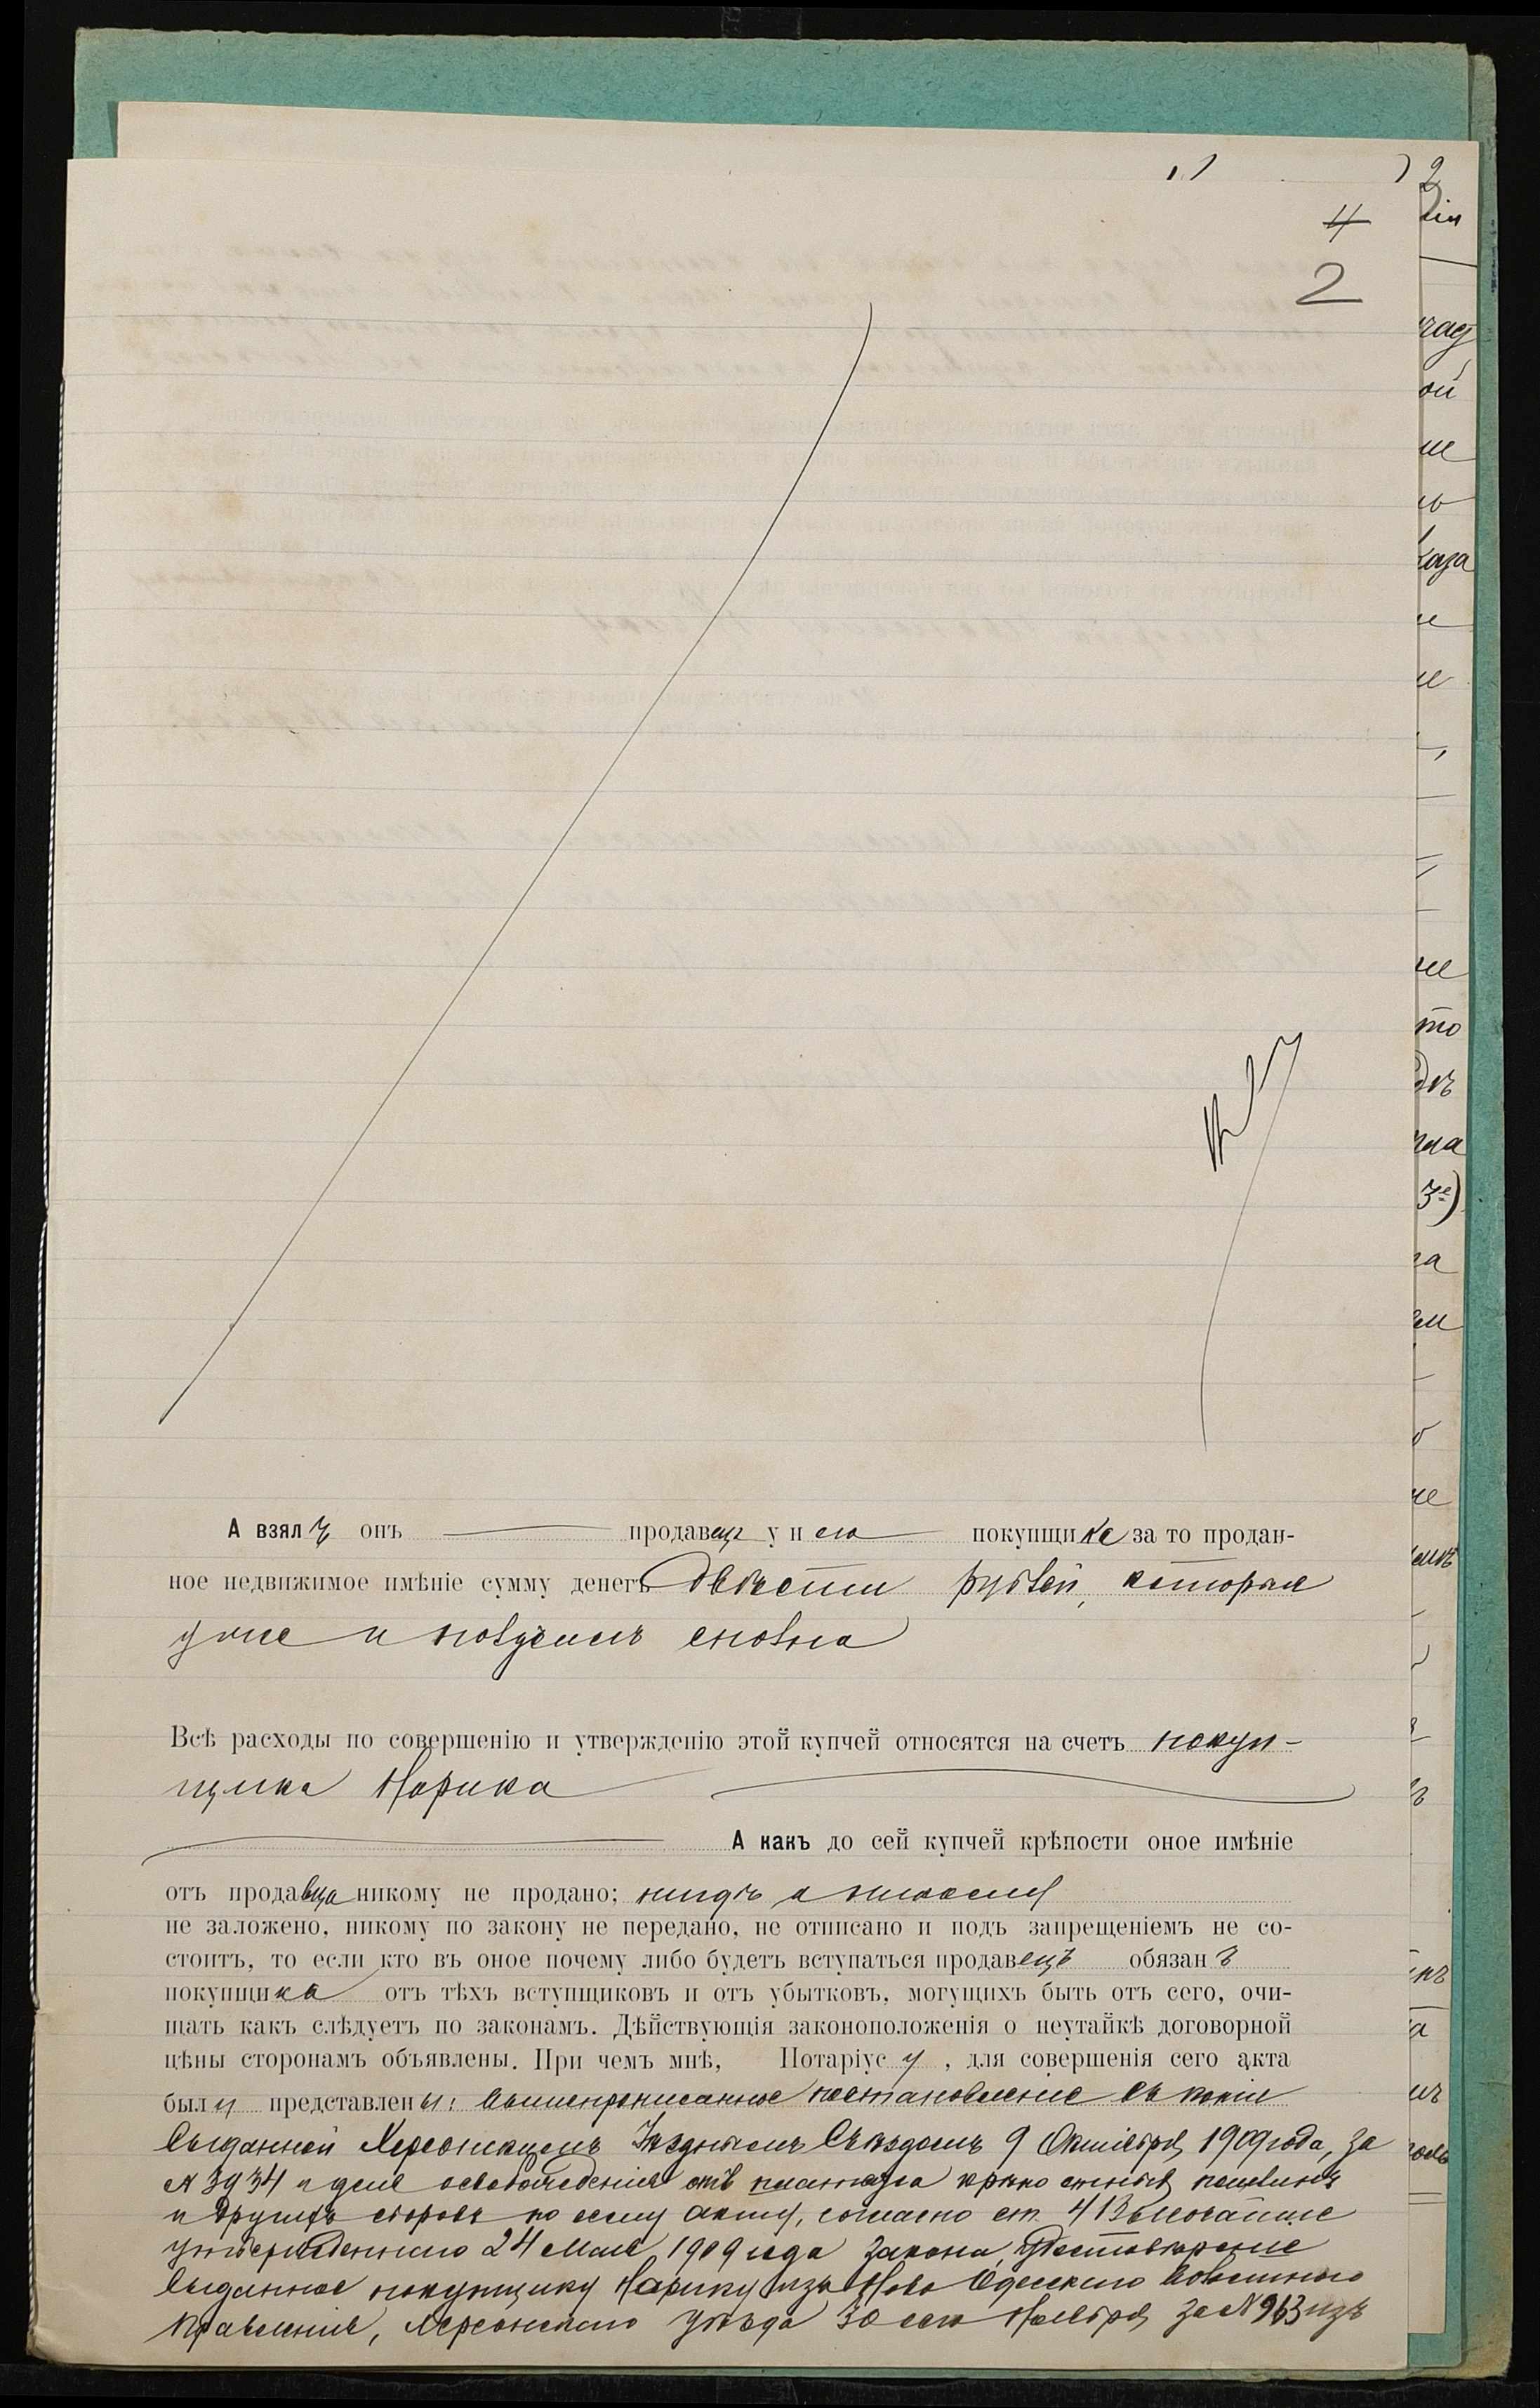 4
2
А взялъ онъ продавецъ у него покупщика за то продан-
ное недвижимое имѣніе сумму денегъ двѣсти рублей, которые
уже и получилъ сполна
Всѣ расходы по совершенію и утвержденію этой купчей относятся на счетъ покуп-
щика Нарика
А какъ до сей купчей крѣпости оное имѣніе
отъ продавца никому не продано; нигдѣ и никому
не заложено, никому по закону не передано, не отписано и подъ запрещеніемъ не со-
стоитъ, то если кто въ оное почему либо будетъ вступаться продавецъ обязанъ
покупщика отъ тѣхъ вступщиковъ и отъ убытковъ, могущихъ быть отъ сего, очи-
щать какъ слѣдуетъ по законамъ. Дѣйствующія законоположенія о неутайкѣ договорной
цѣны сторонамъ объявлены. При чемъ мнѣ, Нотаріусу, для совершенія сего акта
были представлены: вышепрописанное постановленіе въ копіи
выданной Херсонскимъ Уѣзднымъ Съѣздомъ 9 Октября 1909 года, за
№ 3934 для освобожденія отъ платежа крѣпостныхъ пошлинъ
и другихъ сборовъ по сему акту, согласно ст. 4 Высочайше
утвержденнаго 24 Мая 1909 года закона, удостовѣреніе
выданное покупщику Нарику изъ Ново Одесскаго волостного
Правленія, Херсонскаго уѣзда 30 сего Ноября за № 963 изъ